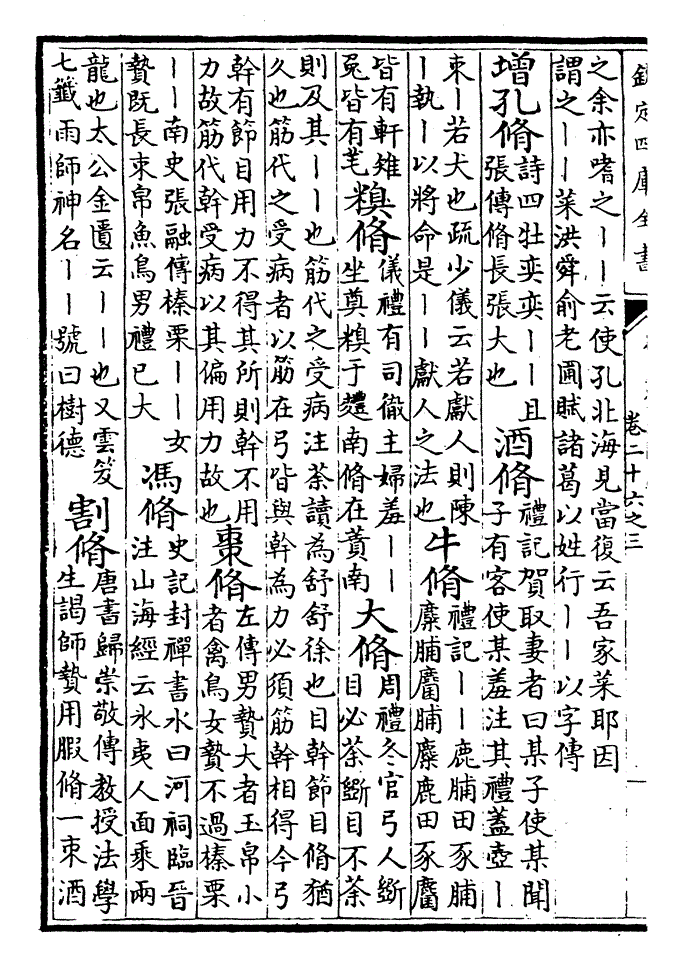 欽定四庫全書
卷二十六之三
之余亦嗜之丨丨云使孔北海見當復云吾家菜耶因
謂之丨丨菜洪舜俞老圃賦諸葛以姓行丨丨以字傳
增孔脩
詩四牡奕奕丨丨且
張傳脩長張大也
酒脩
禮記賀取妻者曰某子使某聞
子有客使某羞注其禮蓋壺丨
束丨若犬也疏少儀云若獻人則陳
丨執丨以將命是丨丨獻人之法也
牛脩
禮記丨丨鹿脯田豕脯
麋脯麕脯麋鹿田豕麕
皆有軒雉
兔皆有芼
糗脩
儀禮有司徹主婦羞丨丨
坐奠糗于麷南脩在蕡南
大脩
周禮冬官弓人斵
目必荼斵目不荼
則及其丨丨也筋代之受病注荼讀為舒舒徐也目幹節目脩猶
久也筋代之受病者以筋在弓皆與幹為力必須筋幹相得今弓
幹有節目用力不得其所則幹不用
力故筋代幹受病以其偏用力故也
棗脩
左傳男贄大者玉帛小
者禽鳥女贄不過榛栗
丨丨南史張融傳榛栗丨丨女
贄既長束帛魚鳥男禮已大
馮脩
史記封禪書水曰河祠臨晉
注山海經云氷夷人面乘兩
龍也太公金匱云丨丨也又雲笈
七籤雨師神名丨丨號曰樹德
割脩
唐書歸崇敬傳教授法學
生謁師贄用腵脩一束酒